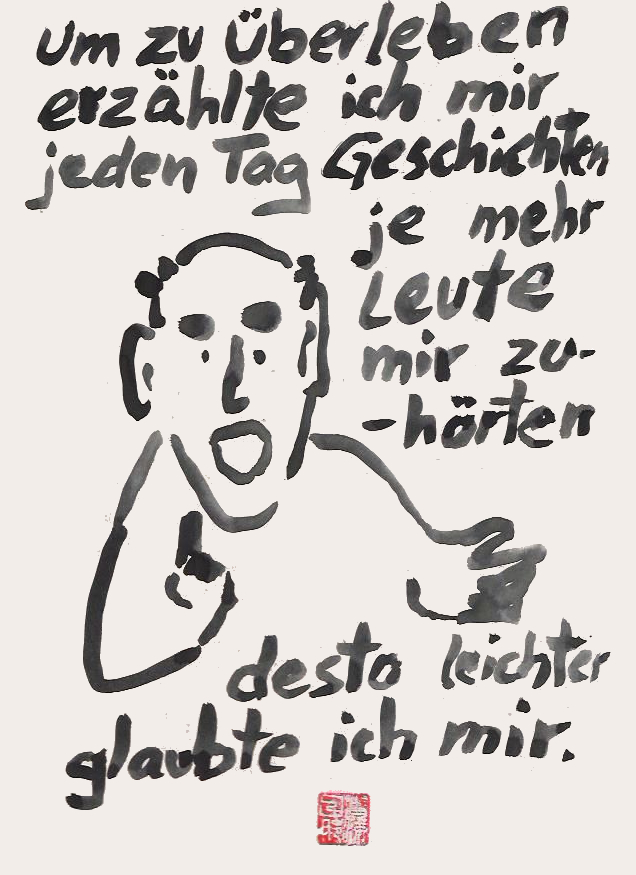 um zu Überleben
erzählte ich mir
jeden Tag Geschichten
je mehr
Leute
mir zu-
-hörten
desto leichter
glaubte ich mir.